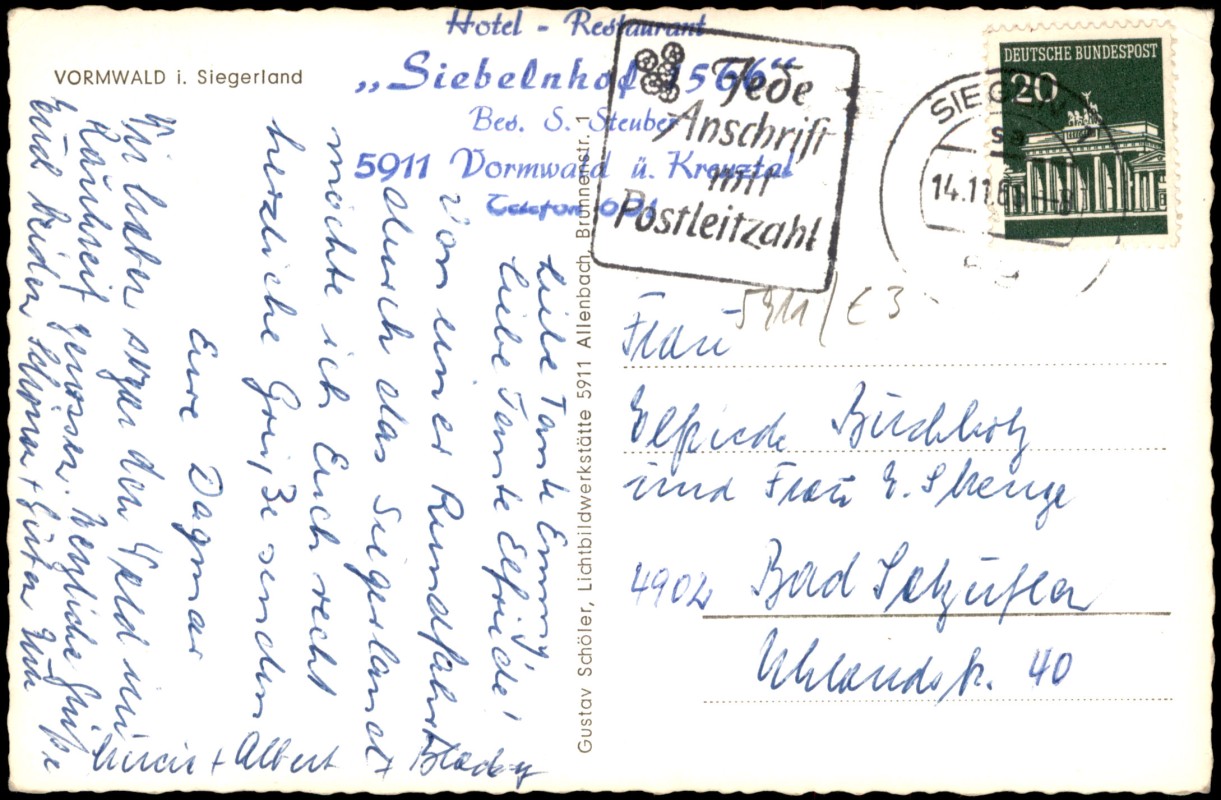 VORMWALD i. Siegerland
Hotel - Restaurant
„Siebelnhof 1566“
Bes. S. Steuber
5911 Vormwald ü. Kreuztal
Telefon 631
Jede
Anschrift
mit
Postleitzahl
SIEGEN
14.11.6
DEUTSCHE BUNDESPOST
20
5911 / € 3
Liebe Tante Emmy,
liebe Tante Elfriede!
Von einer Rundfahrt
durch das Siegerland
möchte ich Euch recht
herzliche Grüße senden
Eure Dagmar
Wir haben sogar den Wald in
Rauhreif genossen. Herzliche Grüße
Euch beiden
+ Albert +
Gustav Schöler, Lichtbildwerkstätte 5911 Allenbach, Brunnenstr. 1
Frau
Elfriede Buchholz
und Frau E. Stenge
4902 Bad Salzuflen
Uhlandstr. 40